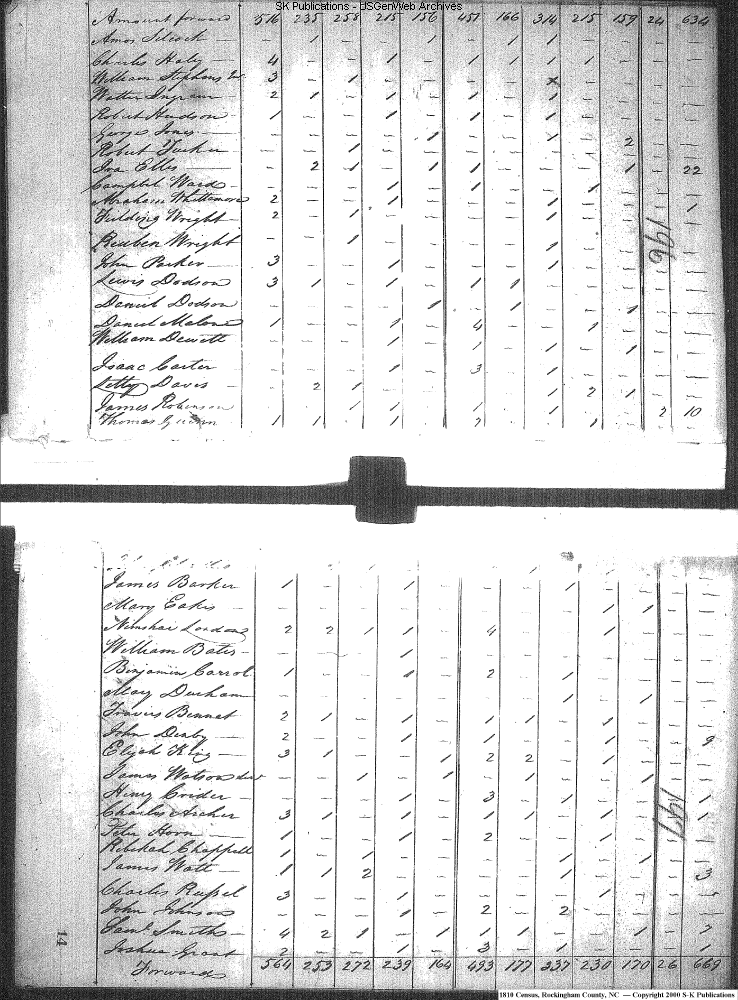 SK Publications - USGenWeb Archives
Amount forward 516 235 258 215 156 451 166 314 215 159 24 634
Amos - 1 - - 1 - 1 1 - - - -
Charles Haley 4 - - 1 - 1 - 1 1 - - -
William Stephens 3 - 1 - - - - x - - - -
Walter Ingram 2 1 - 1 - 1 - 1 - - - -
Robert Hudson 1 - - 1 - 1 - 1 - - - -
George Jones - - - - 1 - - 1 - 2 - -
Robert Tucker - - 1
Ira Ellis - 2 1 - 1 1 - - - 1 - 22
Campbel Ward - - - 1 - 1 - - 1 - - -
Abraham Whittemore 2 - - 1 - - - 1 - - - 1
Fielding Wright 2 - 1 - - - - 1 - - - -
Reuben Wright - - 1 - - - - 1 - - - -
John Parker 3 - - 1 - - - 1 - - - -
Lewis Dodson 3 1 - 1 - 1 1 - - - - -
Daniel Dodson - - - - 1 - 1 - - 1 - -
Daniel Malone 1 - - 1 - 4 - - 1 - - -
William Dewitt - - - 1 - 1 - 1 - 1 - -
Isaac Carter - - - 1 - 3 - 1 - - - -
Letty Davis - 2 1 - - - - 1 2 1 - -
James Robinson - - 1 1 - 1 - 1 - - 2 10
Thomas 1 1 - 1 - 2 - - 1 - - -
196
James Barker 1 - - 1 - - - 1 - - - -
Mary Eakes - - - - - - - - 1 1 - -
2 2 1 1 - 4 - - 1 - - -
William Bates - - - 1 - - - - - - - -
Benjamin Carrol 1 - - 1 - 2 - 1 - - - -
Mary Durham - - - - - - - 1 - 1 - -
Travis Bennet 2 1 - 1 - 1 1 - 1 - - -
John Denby 2 - - 1 - 1 - - 1 - - 9
Elijah King 3 1 - - 1 2 2 - 1 - - -
James Watson - - 1 - 1 - 1 - - 1 - -
Henry Crider - - - 1 - 3 - 1 - - - 1
Charles Archer 3 1 - 1 - 1 1 - 1 - - 1
Peter Horn 1 - - 1 - 2 - - 1 - - -
Rebekah Chappell 1 - 1 - - - - 1 - 1 - -
James Watt 1 1 2 - - - - 1 - - - 3
Charles Russel 3 - - 1 - - - - 1 - - -
John Johnson - - - 1 - 2 - 2 - - - -
Saml Smiths 4 2 1 - 1 1 1 - - 1 - 7
Joshua Grant 2 - - 1 - 3 - 1 - - - 1
Forwards 564 253 272 239 164 493 177 337 230 170 26 669
197
14
1810 Census, Rockingham County, NC — Copyright 2000 S-K Publications